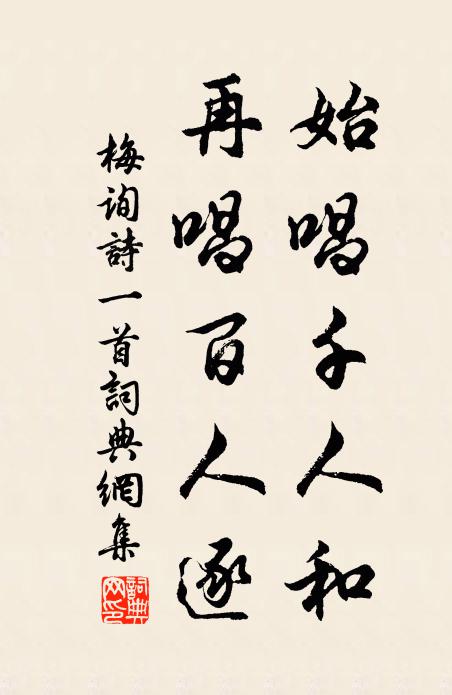 始唱千人和
再唱百人逐
梅询詩一首詞典網集
詞典網印